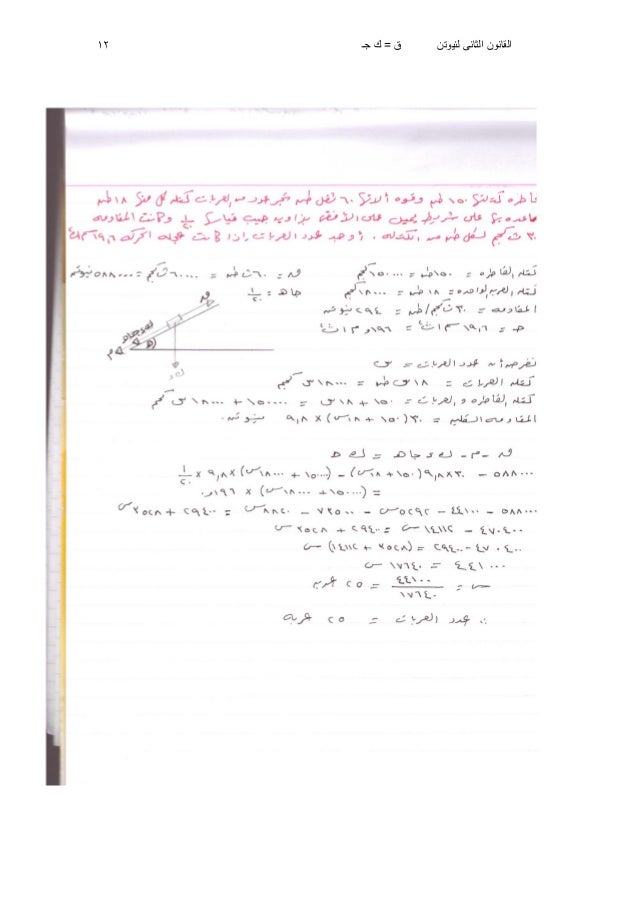 القانون الثانى لنيوتن ق = ك جـ ١٢
قاطره كتلتها ١٥٠ طن وقوه آلاتها ٦٠ ثقل طن تجر عدد من العربات كتله كل منها ١٨ طن
صاعده بها على شريط يميل على الأفقى بزاويه جيب قياسها ١/٢٠ وكانت المقاومه
٣٠ ث كجم لكل طن من الكتله . أوجد عدد العربات إذا كانت عجله الحركه ١٩,٦ سم/ث٢
كتله القاطره = ١٥٠ طن = ١٥٠٠٠٠ كجم
ق = ٦٠ ث طن = ٦٠٠٠٠ ث كجم = ٥٨٨٠٠٠ نيوتن
كتله العربه الواحده = ١٨ طن = ١٨٠٠٠ كجم
جا هـ = ١/٢٠
المقاومه = ٣٠ ث كجم/طن = ٢٩٤ نيوتن
حـ = ١٩,٦ سم/ث٢ = ١٩٦,٠ م/ث٢
ق
م
هـ
ك د جا هـ
ك د
نفرض أن عدد العربات = س
كتله العربات = ١٨ س طن = ١٨٠٠٠ س كجم
كتله القاطره و العربات = ١٥٠ + ١٨ س = ١٥٠٠٠٠ + ١٨٠٠٠ س كجم
المقاومه الكليه = ٣٠ (١٥٠ + ١٨ س) × ٩,٨ نيوتن.
ق - م - ك د جا هـ = ك حـ
٥٨٨٠٠٠ - ٣٠ × ٩,٨ (١٥٠ + ١٨ س) - (١٥٠٠٠٠ + ١٨٠٠٠ س) × ٩,٨ × ١/٢٠
= (١٥٠٠٠٠ + ١٨٠٠٠ س) × ١٩٦,٠
٥٨٨٠٠٠ - ٤٤١٠٠ - ٥٢٩٢ س - ٧٣٥٠٠ - ٨٨٢٠ س = ٢٩٤٠٠ + ٣٥٢٨ س
٤٧٠٤٠٠ - ١٤١١٢ س = ٢٩٤٠٠ + ٣٥٢٨ س
٤٧٠٤٠٠ - ٢٩٤٠٠ = (٣٥٢٨ + ١٤١١٢) س
٤٤١٠٠٠ = ١٧٦٤٠ س
س = ٤٤١٠٠٠/١٧٦٤٠ = ٢٥ عربه
∴ عدد العربات = ٢٥ عربه